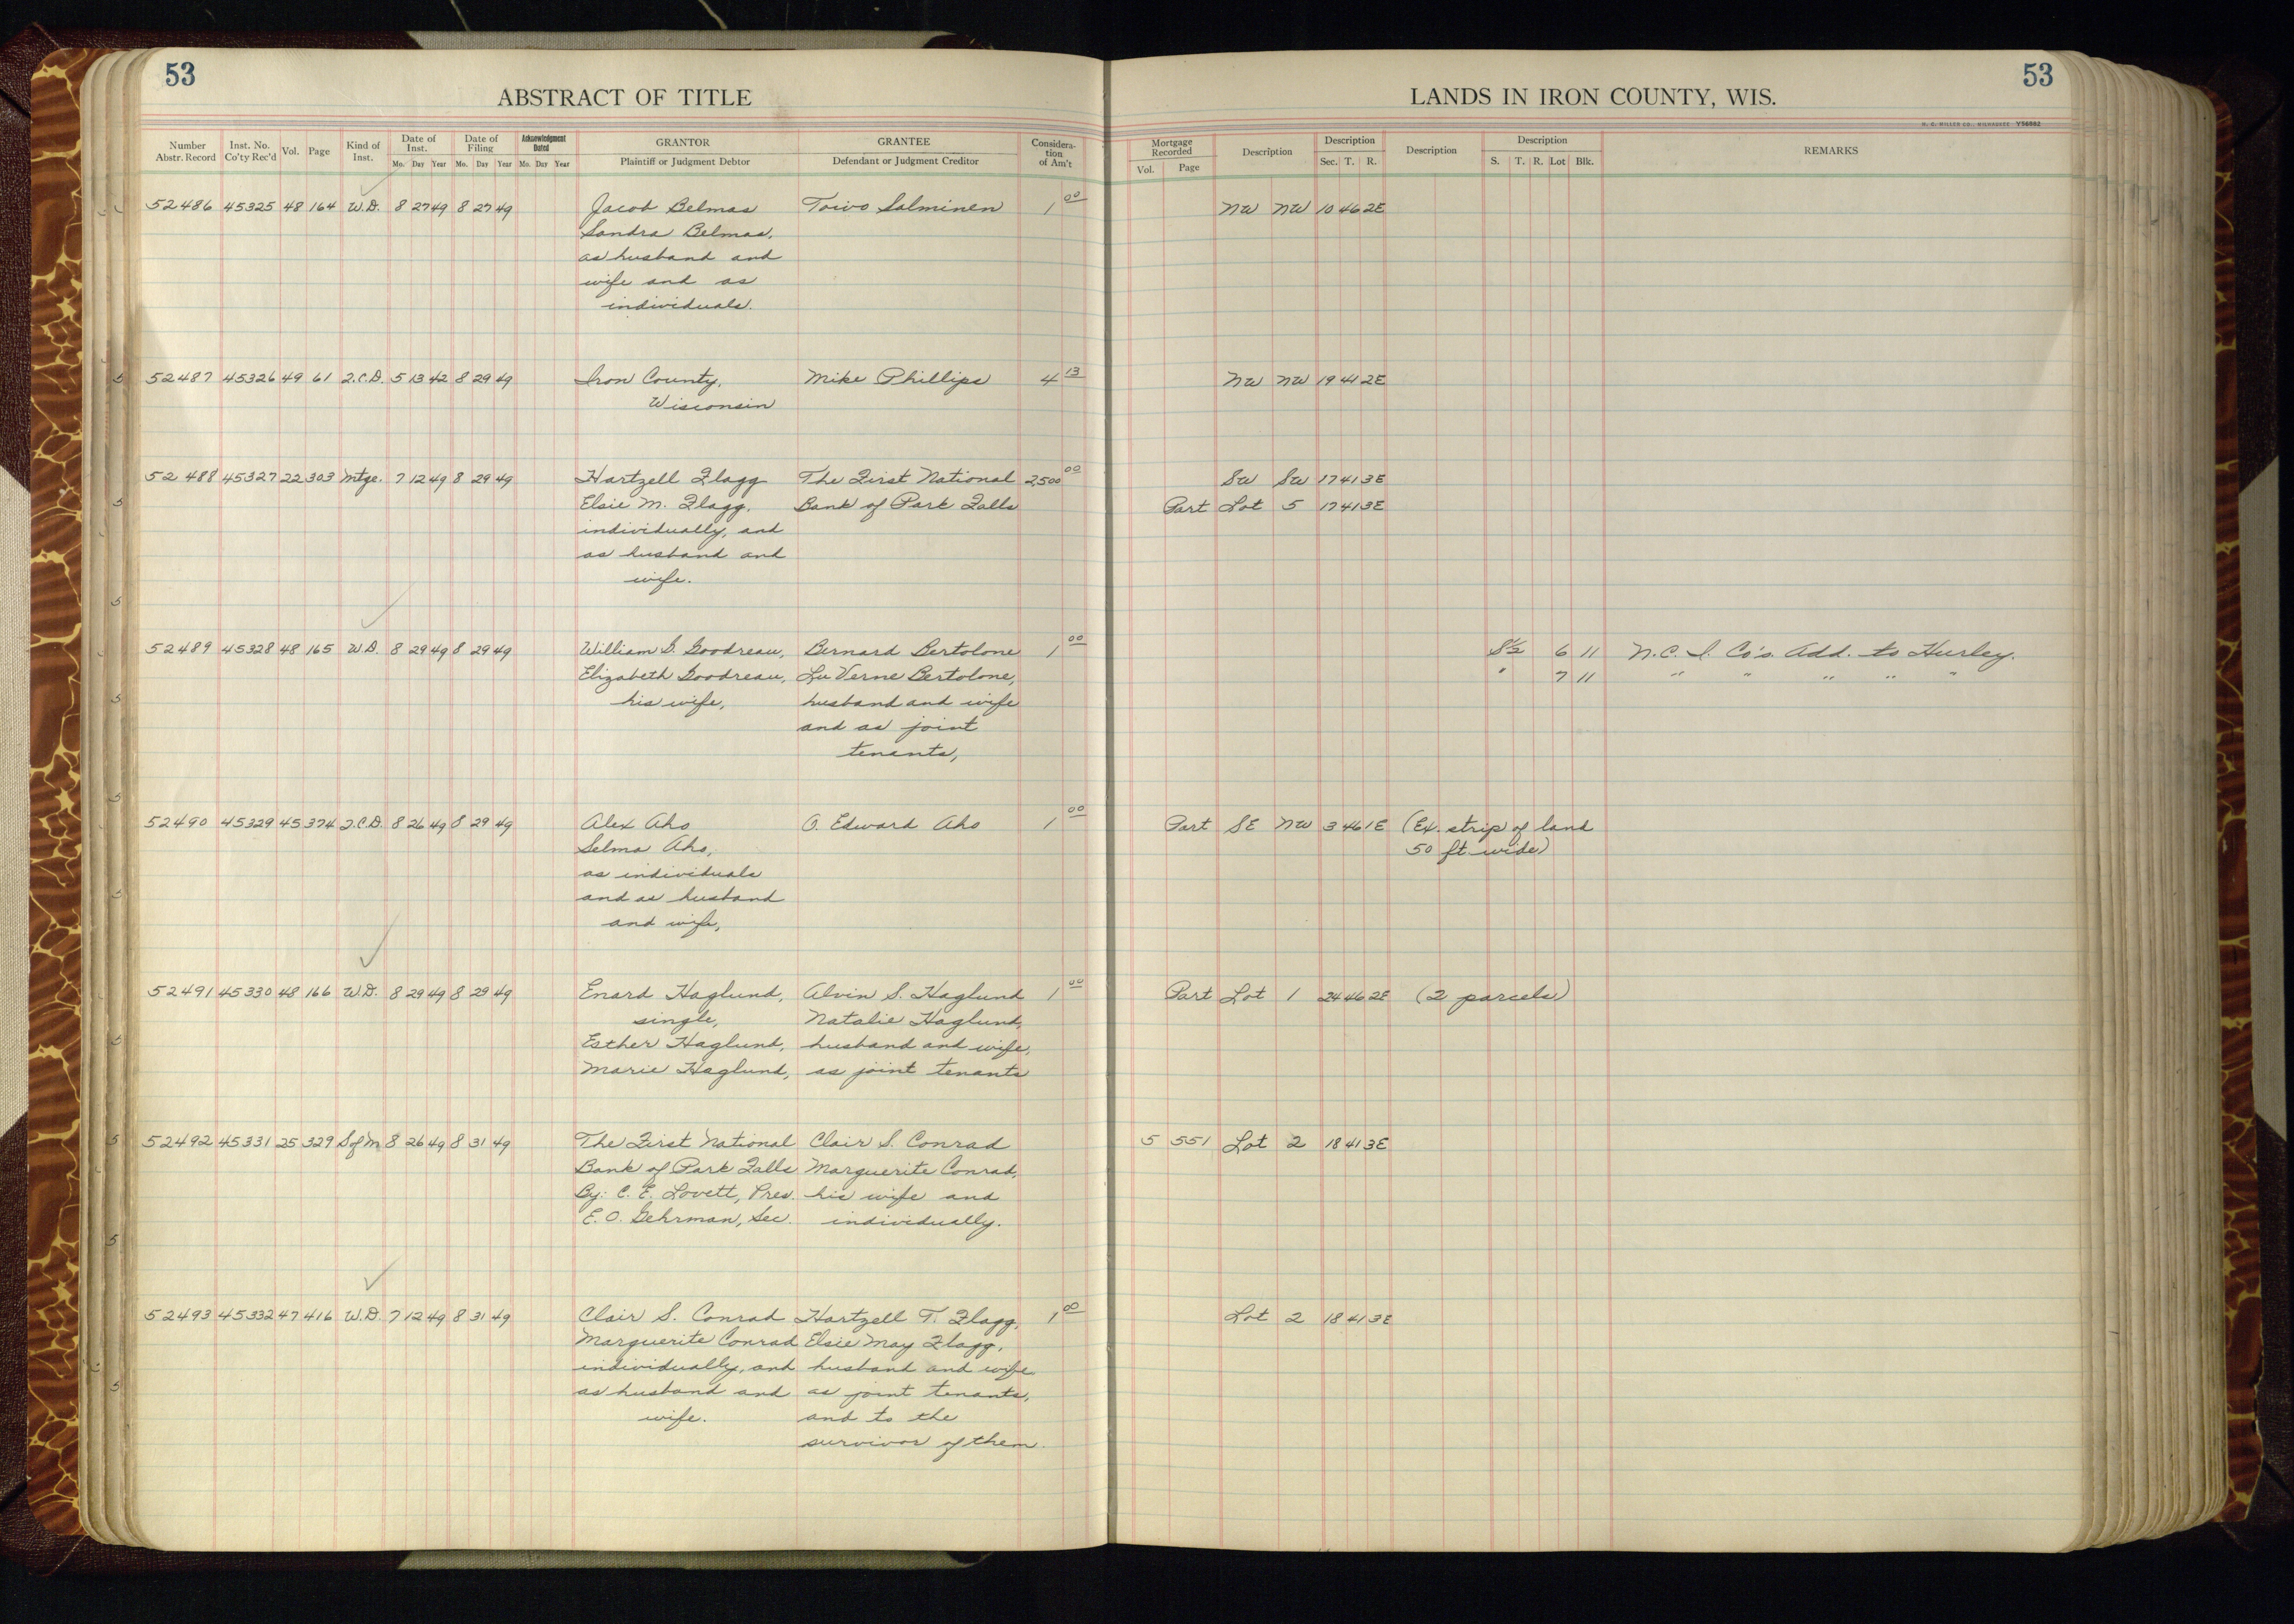 53
53
ABSTRACT OF TITLE
LANDS IN IRON COUNTY, WIS.
H. C. MILLER CO., MILWAUKEE Y56982
Number Abstr. Record Inst. No. Co'ty Rec'd Vol. Page Kind of Inst. Date of Inst. Mo. Day Year Date of Filing Mo. Day Year Acknowledgment Dated Mo. Day Year GRANTOR Plaintiff or Judgment Debtor GRANTEE Defendant or Judgment Creditor Considera-tion of Am't Mortgage Recorded Vol. Page Description Description Sec. T. R. Description Description S. T. R. Lot Blk. REMARKS
52486 45325 48 164 W.D. 8 27 49 8 27 49 Jacob Belmas Toivo Salminen 1 00 NW NW 10 46 2E
Sandra Belmas,
as husband and
wife and as
individuals.
52487 45326 49 61 Q.C.D. 5 13 42 8 29 49 Iron County, Mike Phillips 4 13 NW NW 19 41 2E
Wisconsin
52488 45327 22 303 Mtge. 7 12 49 8 29 49 Hartzell Flagg The First National 2,500 00 SW SW 17 41 3E
Elsie M. Flagg, Bank of Park Falls Part Lot 5 17 41 3E
individually, and
as husband and
wife.
52489 45328 48 165 W.D. 8 29 49 8 29 49 William D. Goodreau, Bernard Bertolone 1 00 S½ 6 11 N.C.I. Co's. Add. to Hurley.
Elizabeth Goodreau, Lu Verne Bertolone, " 7 11 " " " " "
his wife, husband and wife
and as joint
tenants,
52490 45329 45 374 Q.C.D. 8 26 49 8 29 49 Alex Aho O. Edward Aho 1 00 Part SE NW 3 46 1E (Ex. strip of land
Selma Aho, 50 ft. wide)
as individuals
and as husband
and wife,
52491 45330 48 166 W.D. 8 29 49 8 29 49 Enard Haglund, Alvin S. Haglund 1 00 Part Lot 1 24 46 2E (2 parcels)
single, Natalie Haglund,
Esther Haglund, husband and wife,
Marie Haglund, as joint tenants
52492 45331 25 329 S of M 8 26 49 8 31 49 The First National Clair S. Conrad 5 551 Lot 2 18 41 3E
Bank of Park Falls Marguerite Conrad,
By: C. E. Lovett, Pres. his wife and
E. O. Gehrman, Sec. individually.
52493 45332 47 416 W.D. 7 12 49 8 31 49 Clair S. Conrad Hartzell T. Flagg, 1 00 Lot 2 18 41 3E
Marguerite Conrad Elsie May Flagg,
individually, and husband and wife
as husband and as joint tenants,
wife. and to the
survivor of them.